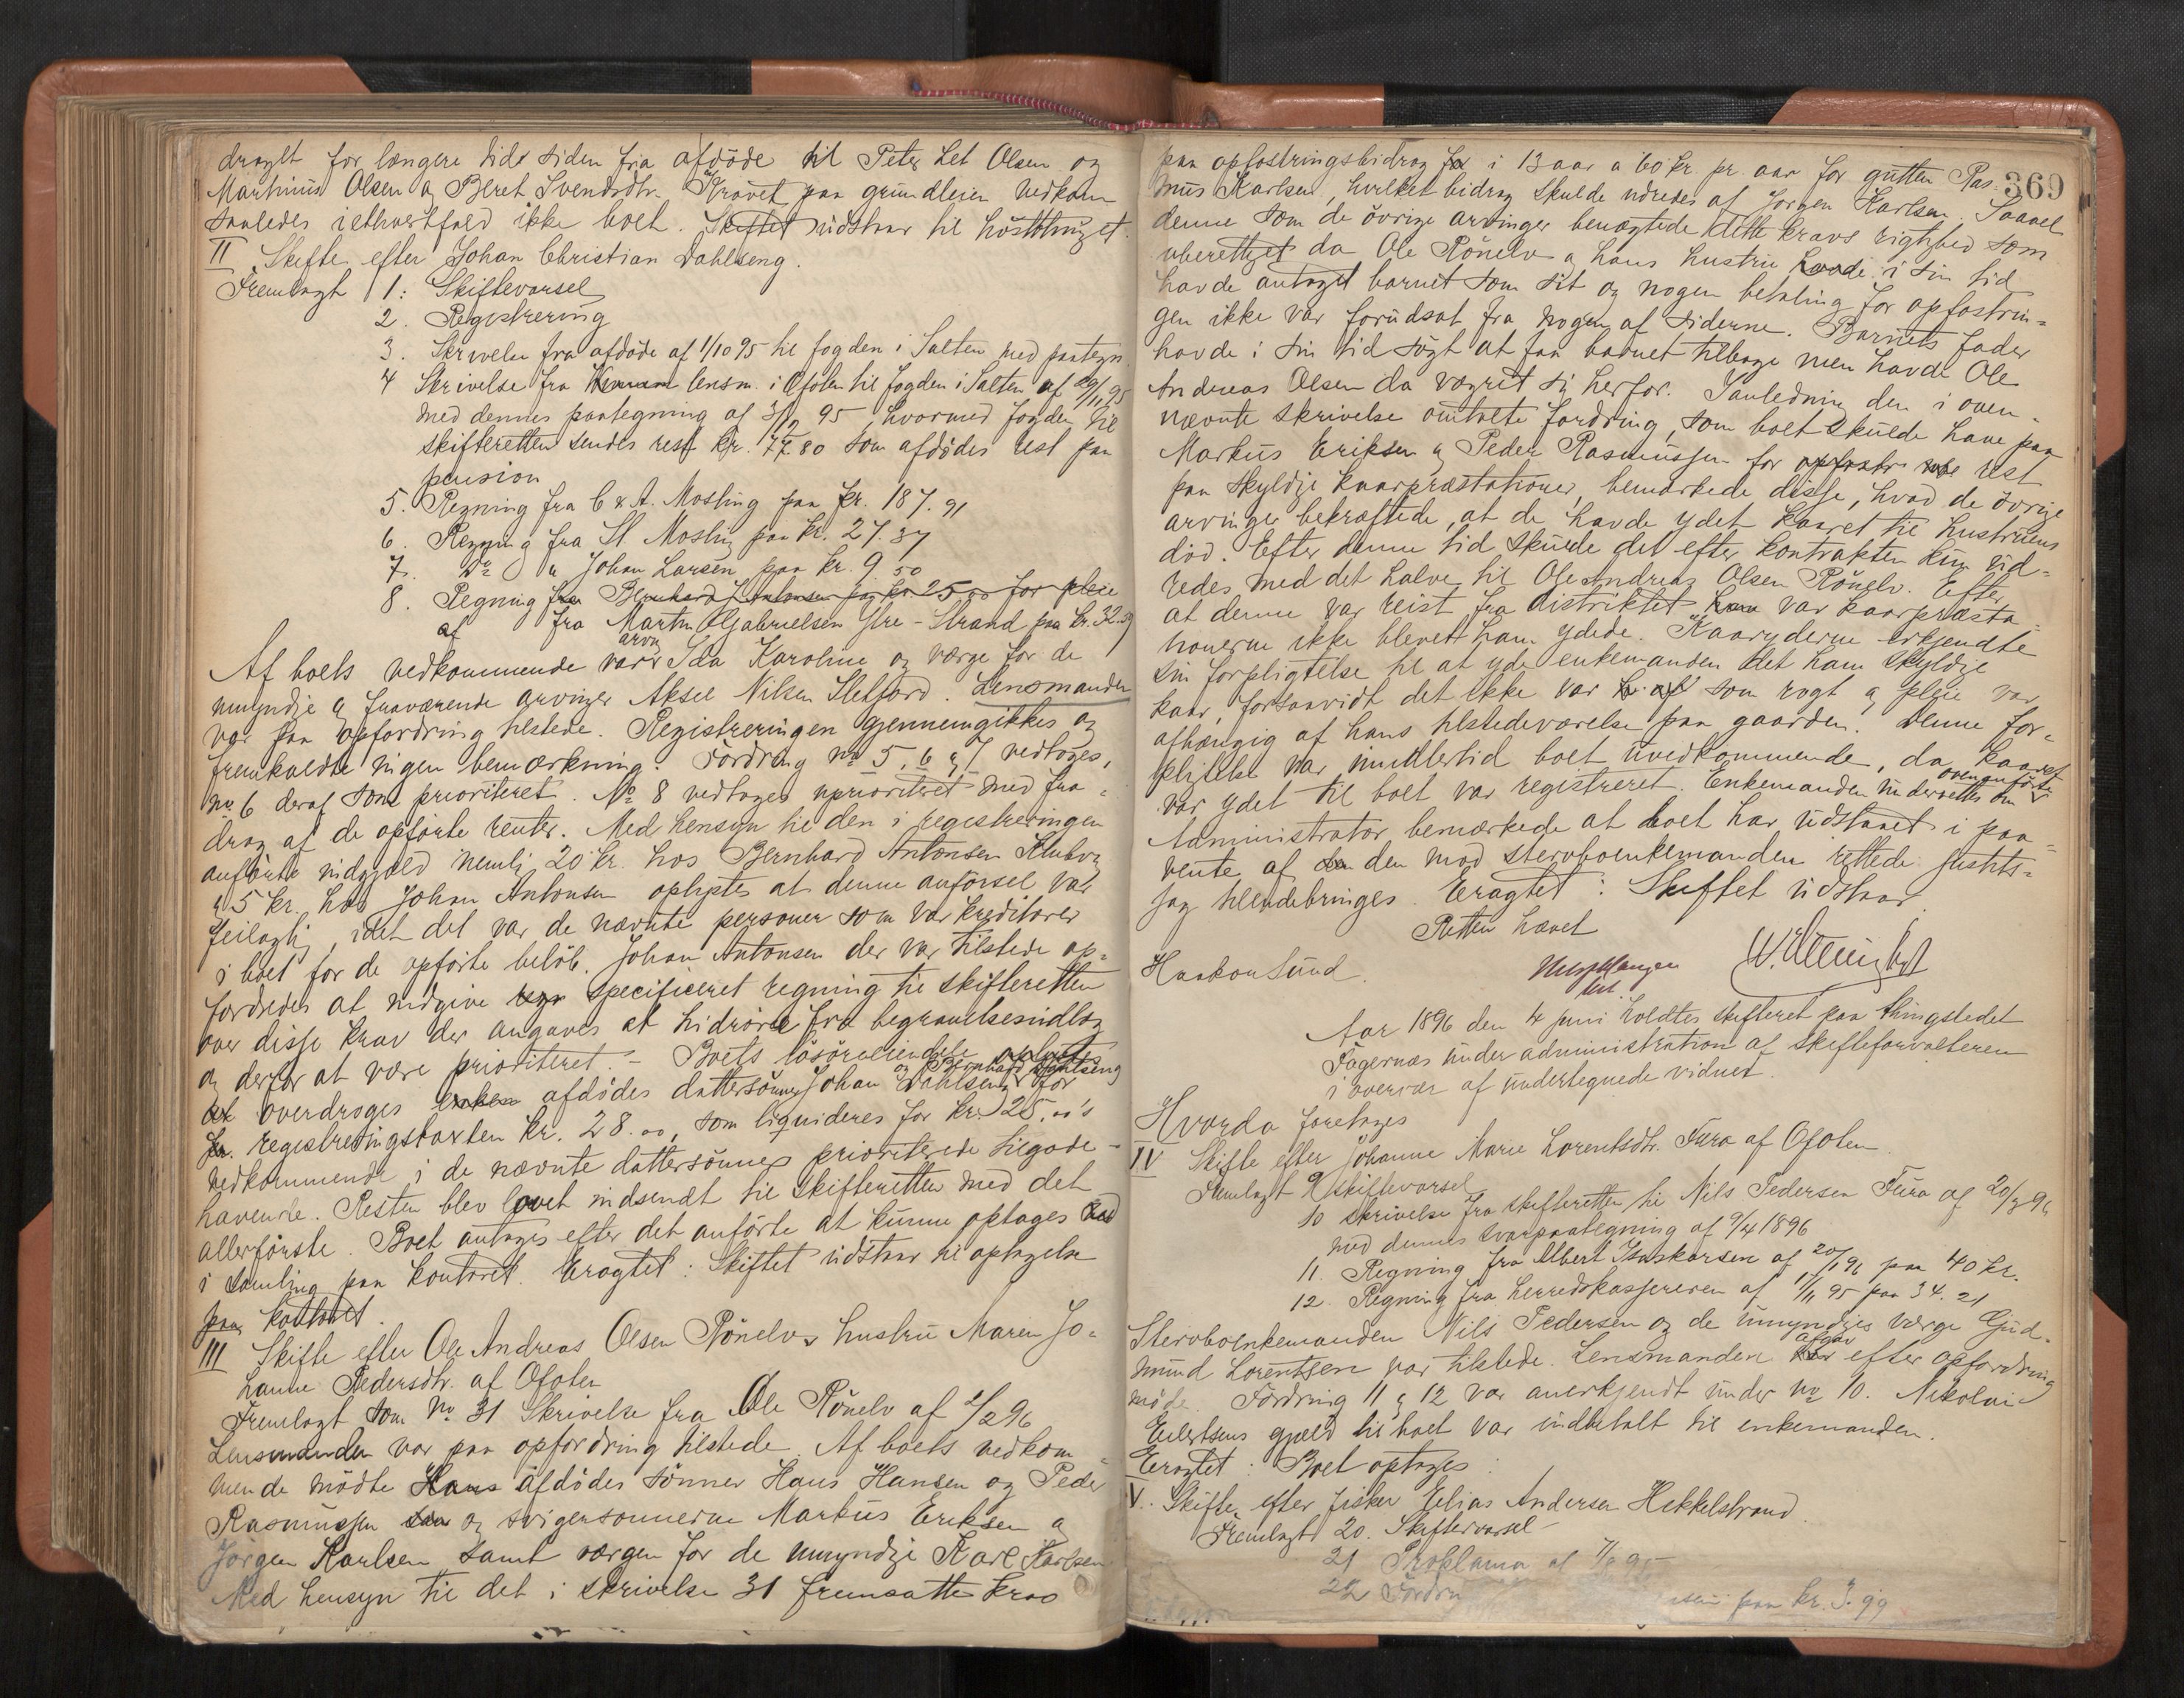 dragt for længere tids siden fra afdøde til Peter Let Olsen og
Martinus Olsen og Beret Svendsdtr. Kravet paa grundleien vedkom
saaledes iethvertfald ikke boet. Skiftet udstaar til høstthinget.
II Skifte efter Johan Christian Dahlseng.
Fremlagt 1: Skiftevarsel
2. Registrering
3. Skrivelse fra afdøde af 1/10 95 til fogden i Salten med paategn.
4 Skrivelse fra lensm. i Ofoten til fogden i Salten af 29/11 95
med dennes paategning af 3/12 95, hvormed fogden til
skifteretten sendes rest kr. 77.80 som afdødes rest paa
pension
5. Regning fra C & A. Mosling paa kr. 187.91
6. Regning fra St Mosling paa kr. 27.37
7. do " Johan Larsen paa kr. 9.50
8. Regning fra Bernhard Antonsen paa kr 25.00 for pleie
af fra Martin Olgabrielsen Ytre-Strand paa kr. 32.59
Af boets vedkommende var arving Ida Karoline og værge for de
umyndige og fraværende arvinger Aksel Nilsen Sletjord. Lensmanden
var paa opfordring tilstede. Registreringen gjennemgikkes og
fremkaldte ingen bemærkning. Fordring No 5, 6 og 7 vedtoges,
No 6 deraf som prioriteret. No 8 vedtoges uprioriteret med fra-
drag af de opførte renter. Med hensyn til den i registreringen
anførte indgjæld nemlig 20 kr. hos Bernhard Antonsen
og 5 kr. hos Johan Antonsen oplystes at denne anførsel var
feilagtig, idet det var de nævnte personer som var kreditorer
i boet for de opførte beløb. Johan Antonsen der var tilstede op-
fordredes at indgive specificeret regning til skifteretten
over disse krav der angaves at hidrøre fra begravelsesudlæg
og derfor at være prioriteret. - Boets løsøreeiendele
overdroges afdødes dattersønner Johan og Bernhard Dahlseng for
registreringstaxten kr. 28.00, som liquideres for kr 25.00's
vedkommende i de nævnte dattersønners prioriterede tilgode-
havende. Resten blev lovet indsendt til skifteretten med det
allerførste. Boet antages efter det anførte at kunne optages
i samling paa kontoret. Eragtet: Skiftet udstaar til optagelse
paa kontoret.
III Skifte efter Ole Andreas Olsen Rönelvs hustru Maren Jo-
hanne Pedersdtr. af Ofoten
Fremlagt som No 31 Skrivelse fra Ole Rönelv af 2/2 96
Lensmanden var paa opfordring tilstede. Af boets vedkom-
mende mødte Hans afdødes sønner Hans Hansen og Peder
Rasmussen og svigersønnerne Markus Eriksen og
Jørgen Karlsen samt værgen for de umyndige Karl Karlsen
Med hensyn til det i skrivelse 31 fremsatte krav
369
paa opfostringsbidrag for i 13 aar a 60 kr. pr. aar for gutten Ras-
mus Karlsen, hvilket bidrag skulde udredes af Jørgen Karlsen. Saavel
denne som de övrige arvinger benægtede dette kravs rigtighed som
uberettiget da Ole Rönelv og hans hustru havde i sin tid
havde antaget barnet som sit og nogen betaling for opfostrin-
gen ikke var forudsat fra nogen af siderne. Barnets fader
havde i sin tid søgt at faa barnet tilbage men havde Ole
Andreas Olsen da vægret sig herfor. I anledning den i oven-
nævnte skrivelse omtalte fordring, som boet skulde have paa
Markus Eriksen og Peder Rasmussen for rest
paa skyldige kaarpræstationer, bemærkede disse, hvad de övrige
arvinger bekræftede, at de havde ydet kaaret til hustruens
död. Efter denne tid skulde det efter kontrakten kun ud-
redes med det halve til Ole Andreas Olsen Rönelv. Efter
at denne var reist fra distriktet var kaarpræsta-
tionerne ikke blevet ham ydede. Kaaryderne erkjendte
sin forpligtelse til at yde enkemanden det ham skyldige
kaar, forsaavidt det ikke var som røgt og pleie var
afhængig af hans tilstedeværelse paa gaarden. Denne for-
pligtelse var imidlertid boet uvedkommende, da kaaret
var ydet til boet var registreret. Enkemanden underrettes om ovenanførte
Administrator bemærkede at boet har udstaaet i paa-
vente af den mod stervboenkemanden rettede justits-
sag tilendebringes. Eragtet: Skiftet udstaar.
Retten hævet
Haakon Sund.
Aar 1896 den 4 juni holdtes skifteret paa thingstedet
Fagernæs under administration af skifteforvalteren
i overvær af undertegnede vidner.
Hvorda foretoges
IV Skifte efter Johanne Marie Lorentsdtr. Furo af Ofoten
Fremlagt 9 skiftevarsel
10 skrivelse fra skifteretten til Nils Pedersen Furo af 20/3 96
med dennes svarpaategning af 9/4 1896
11. Regning fra Albert Isaskarsen af 20/1 96 paa 40 kr.
12. Regning fra herredskassereren af 1/11 95 paa 34.21
Stervboenkemanden Nils Pedersen og de umyndiges værge Gud-
mund Lorentsen var tilstede. Lensmanden afgav efter opfordring
møde. Fordring 11 og 12 var anerkjendt under No 10. Nikolai
Eilertsens gjæld til boet var indbetalt til enkemanden.
Eragtet: Boet optages:
V. Skifte efter fisker Eilias Andersen Hekkelstrand.
Fremlagt 20. Skiftevarsel
21 Proklama af 7/8 95
22 Fordrin
paa kr. 3.99